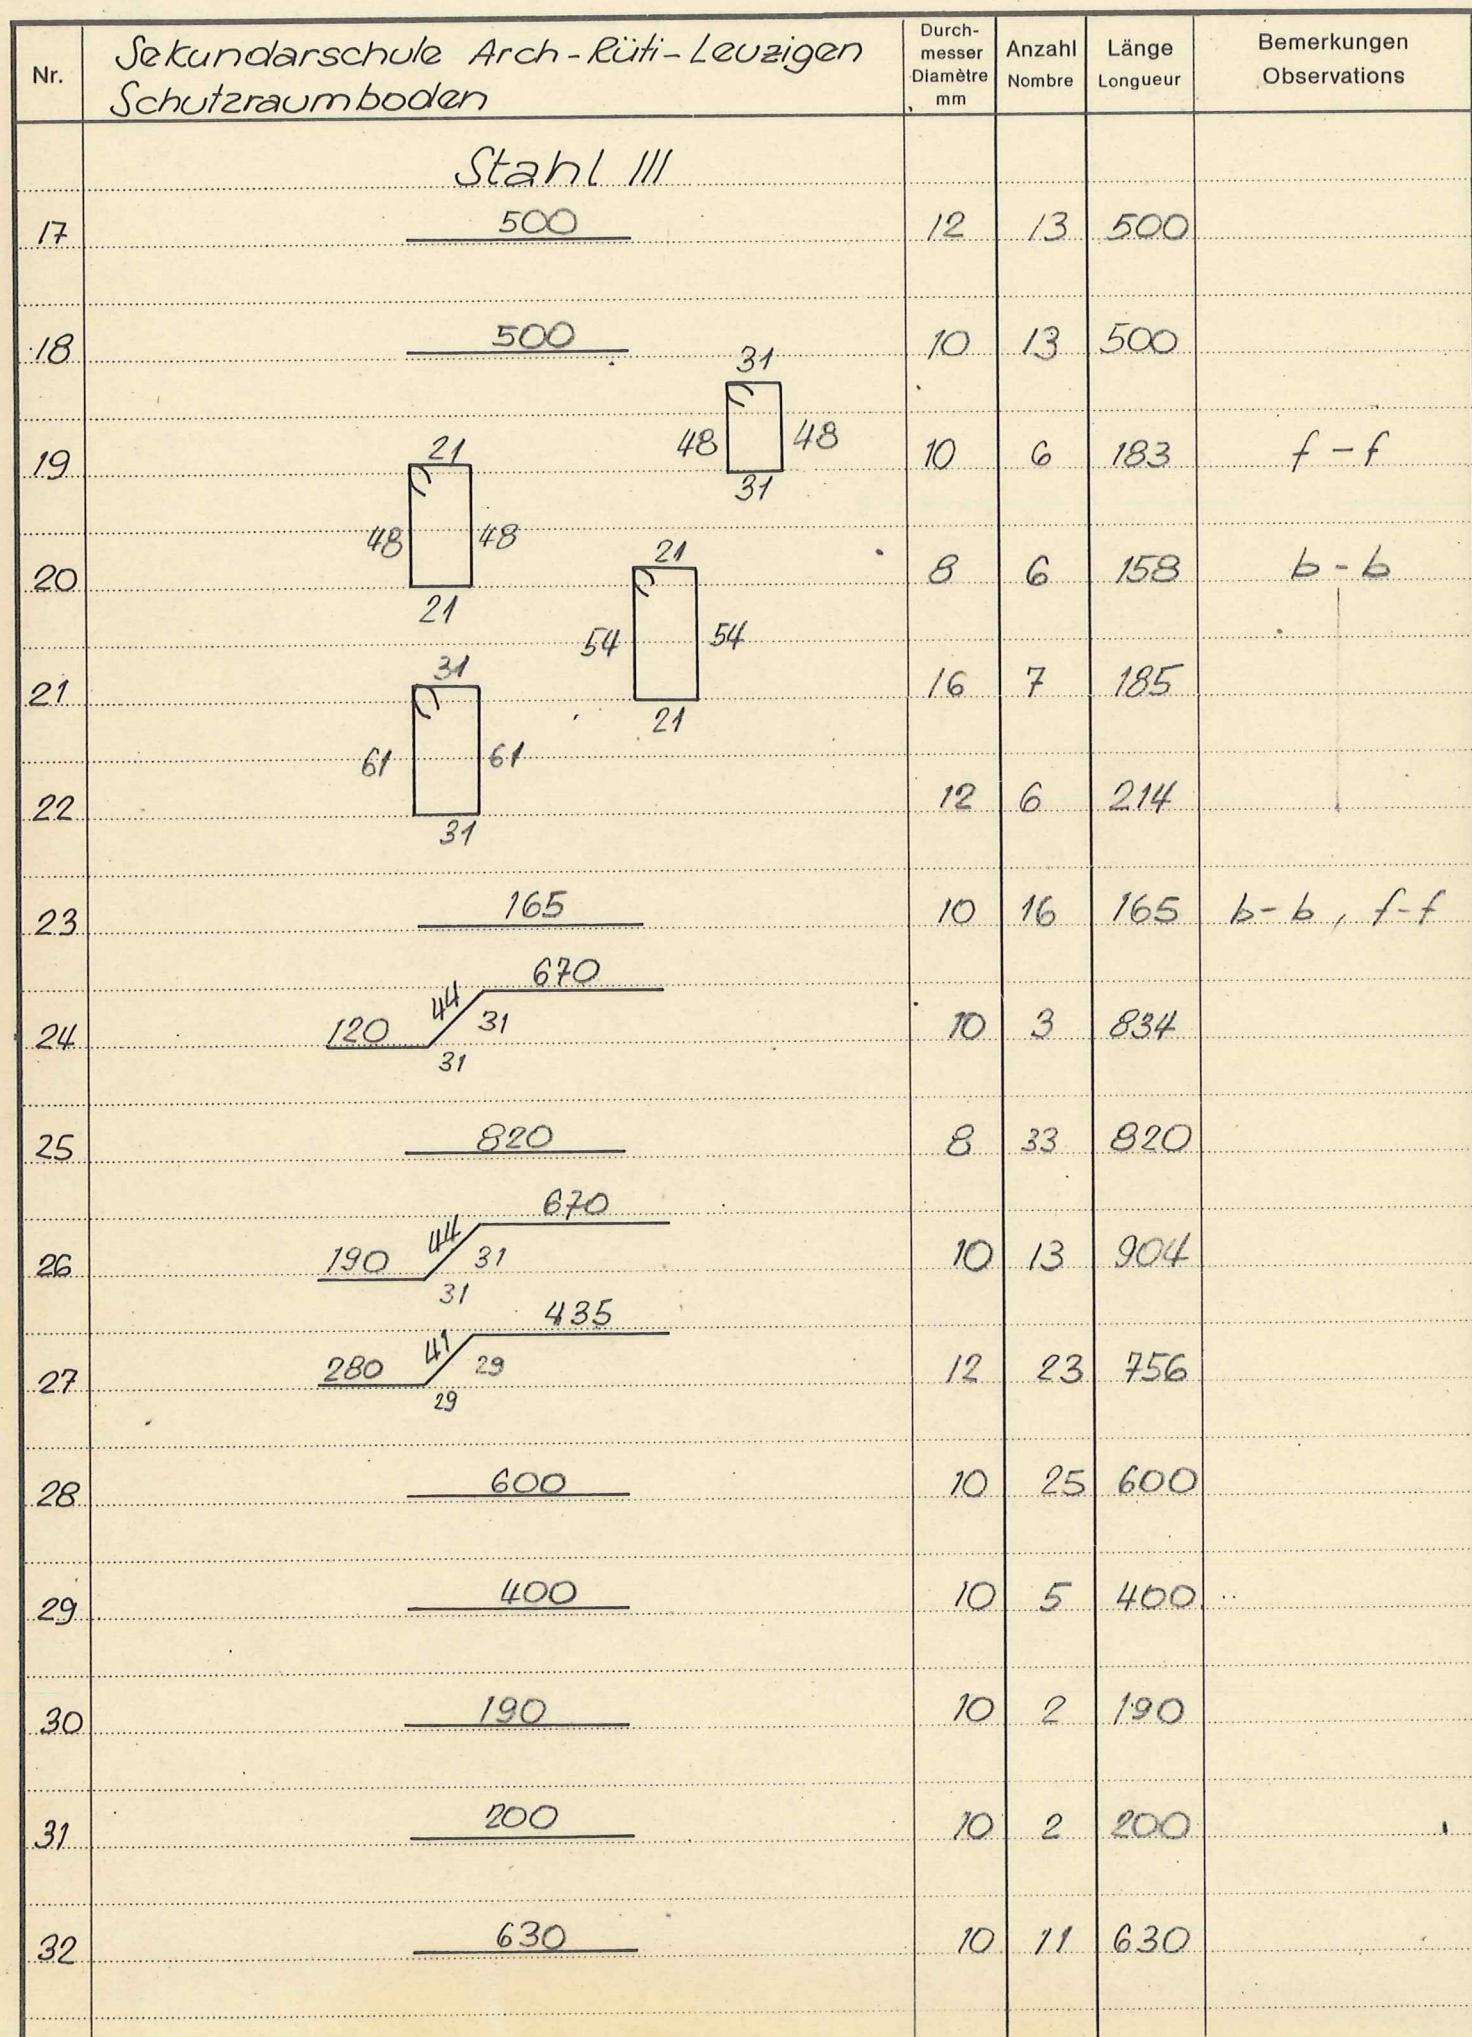 Nr. Sekundarschule Arch-Rüti-Leuzigen Schutzraumboden Durch-messer Diamètre mm Anzahl Nombre Länge Longueur Bemerkungen Observations
Stahl III
17 500 12 13 500
18 500 10 13 500
31
48 48
31
19 10 6 183 f-f
21
48 48
21
20 8 6 158 b-b
21
54 54
21
21 16 7 185
31
61 61
31
22 12 6 214
23 165 10 16 165 b-b, f-f
670
44
31
24 120 10 3 834
31
25 820 8 33 820
670
44
31
26 190 10 13 904
31
435
41
29
27 280 12 23 756
29
28 600 10 25 600
29 400 10 5 400
30 190 10 2 190
31 200 10 2 200
32 630 10 11 630